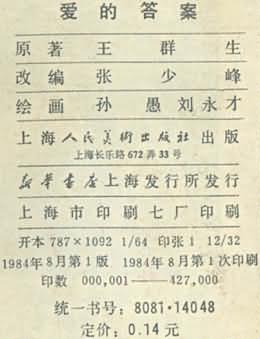 爱的答案
原著 王群生
改编 张少峰
绘画 孙愚 刘永才
上海人民美術出版社出版
上海长乐路672弄33号
新华書店上海发行所发行
上海市印刷七厂印刷
开本 787×1092 1/64 印张 1 12/32
1984年8月第1版 1984年8月第1次印刷
印数 000,001——427,000
统一书号：8081·14048
定价：0.14元